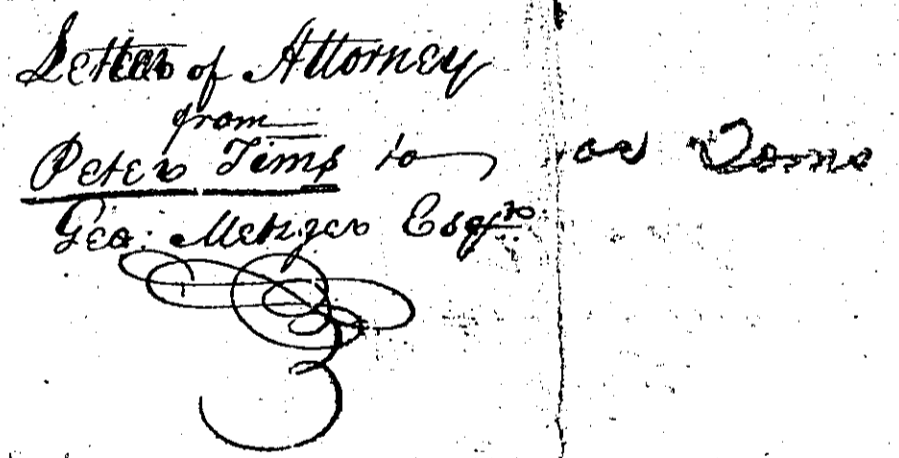 Letter of Attorney
from
Peter Tims to
Geo: Metzger Esqr.